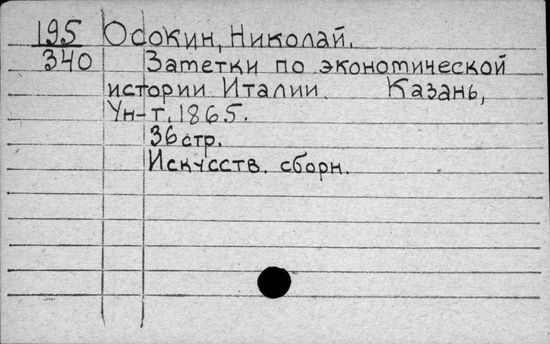 195 Осокин, Николай.
340 Заметки по экономической
истории Италии. Казань,
Ун-т, 1865.
36 стр.
Искусств. сборн.